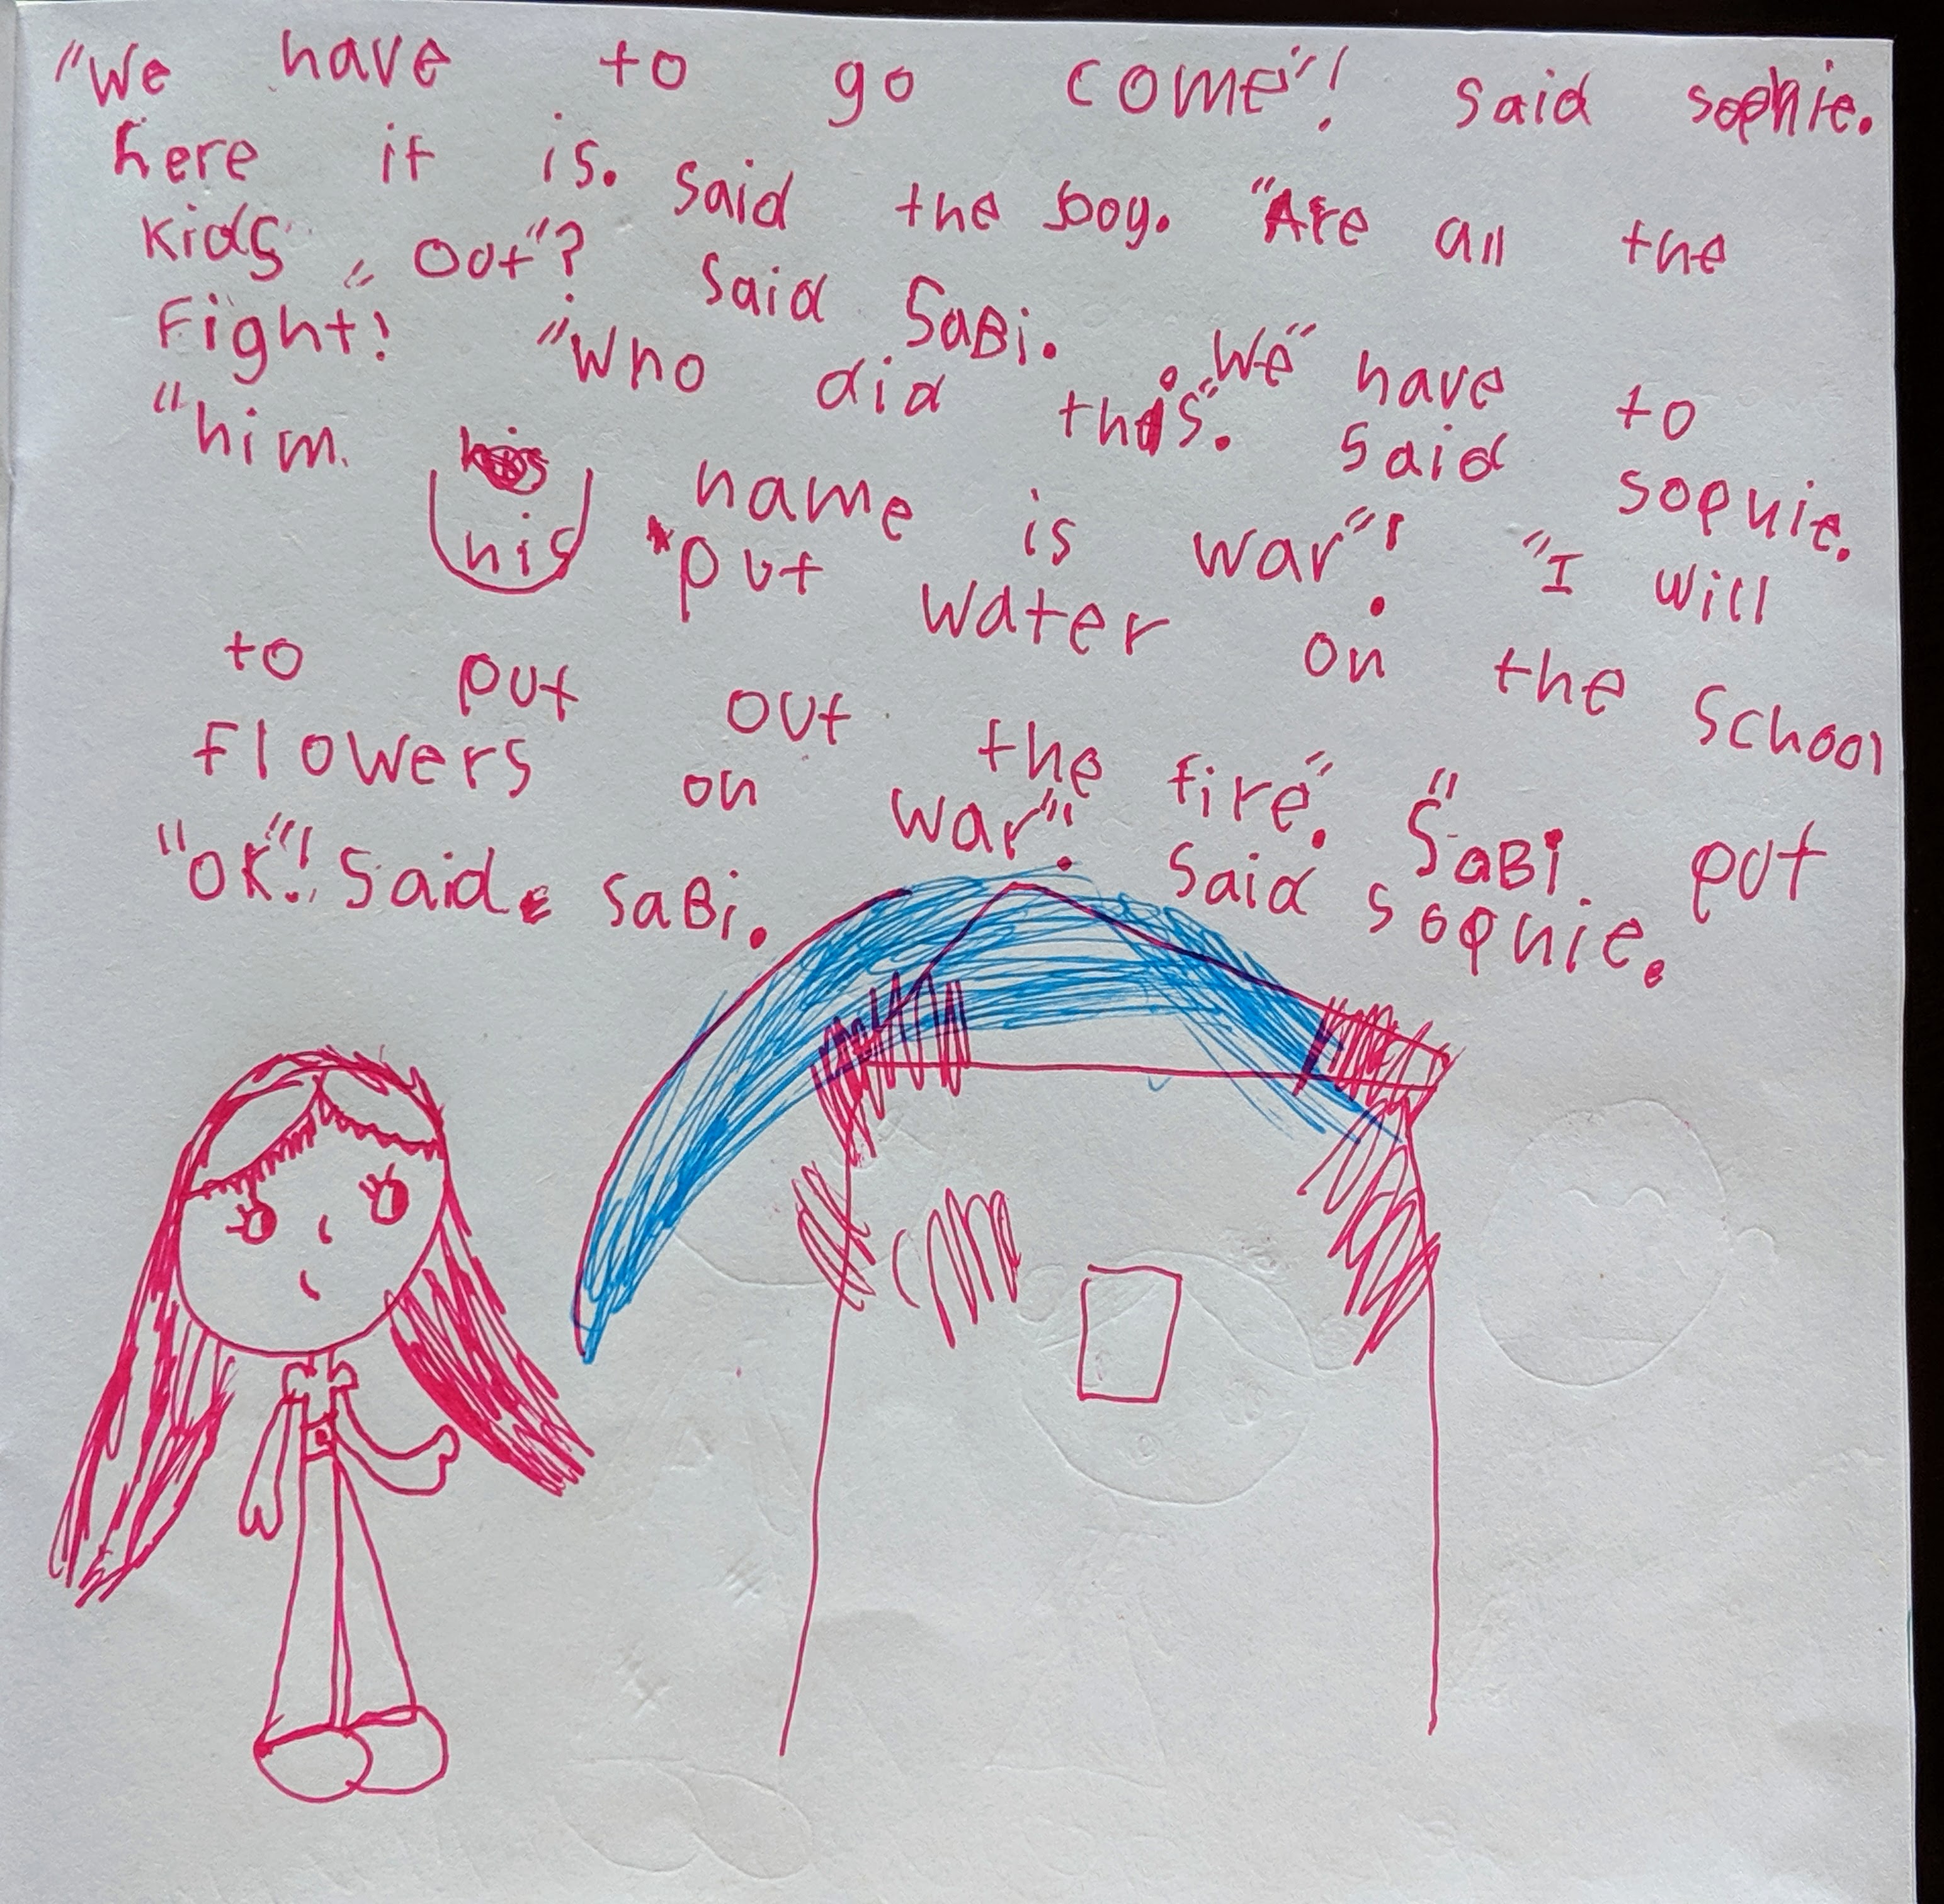 "We have to go come"! said sophie.
here it is. said the boy. "Are all the
kids out"? said SaBi. "We" have to
Fight! "Who did this". said sophie.
"him. his name is war"! "I will
put water on the school
to put out the fire". "SaBi put
flowers on war". said sophie.
"OK"! said SaBi.